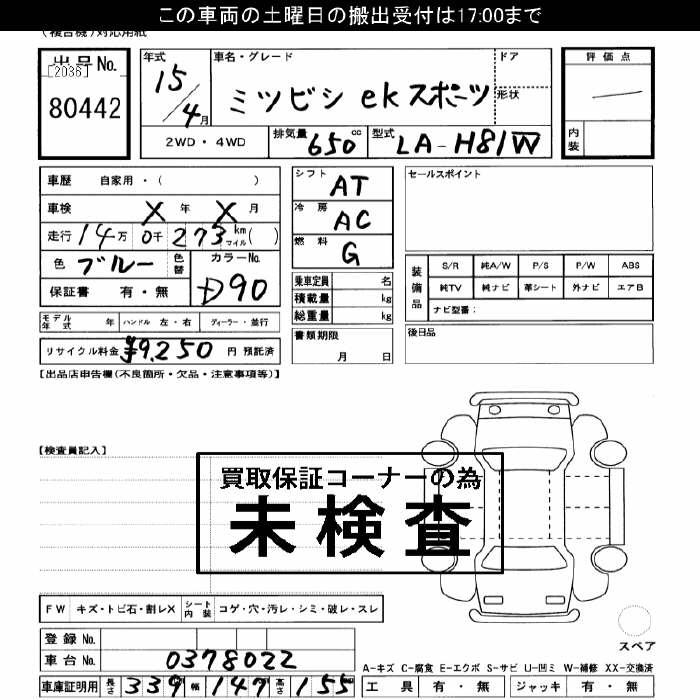 この車両の土曜日の搬出受付は17:00まで
(複合機)対応用紙
出品No.
[2036]
80442
年式
15/4月
車名・グレード
ミツビシ ekスポーツ
ドア
形状
評価点
内装
2WD・4WD
排気量 650 cc
型式 LA-H81W
車歴 自家用・( )
車検 X 年 X 月
走行 14万 0千273 km マイル( )
色 ブルー 色替
カラーNo. D90
保証書 有・無
シフト AT
冷房 AC
燃料 G
乗車定員 名
積載量 kg
総重量 kg
セールスポイント
装備品
S/R 純A/W P/S P/W ABS
純TV 純ナビ 革シート 外ナビ エアB
ナビ型番:
モデル年式 年 ハンドル 左・右 ディーラー・並行
リサイクル料金 ¥9,250 円 預託済
書類期限
月 日
後日品
【出品店申告欄(不良箇所・欠品・注意事項等)】
【検査員記入】
買取保証コーナーの為
未検査
FW キズ・トビ石・割レX シート内装 コゲ・穴・汚レ・シミ・破レ・スレ
スペア
登録No.
車台No. 0378022
車庫証明用 長さ 339 幅 147 高さ 155
A-キズ C-腐食 E-エクボ S-サビ U-凹ミ W-補修 XX-交換済
工具 有・無 ジャッキ 有・無